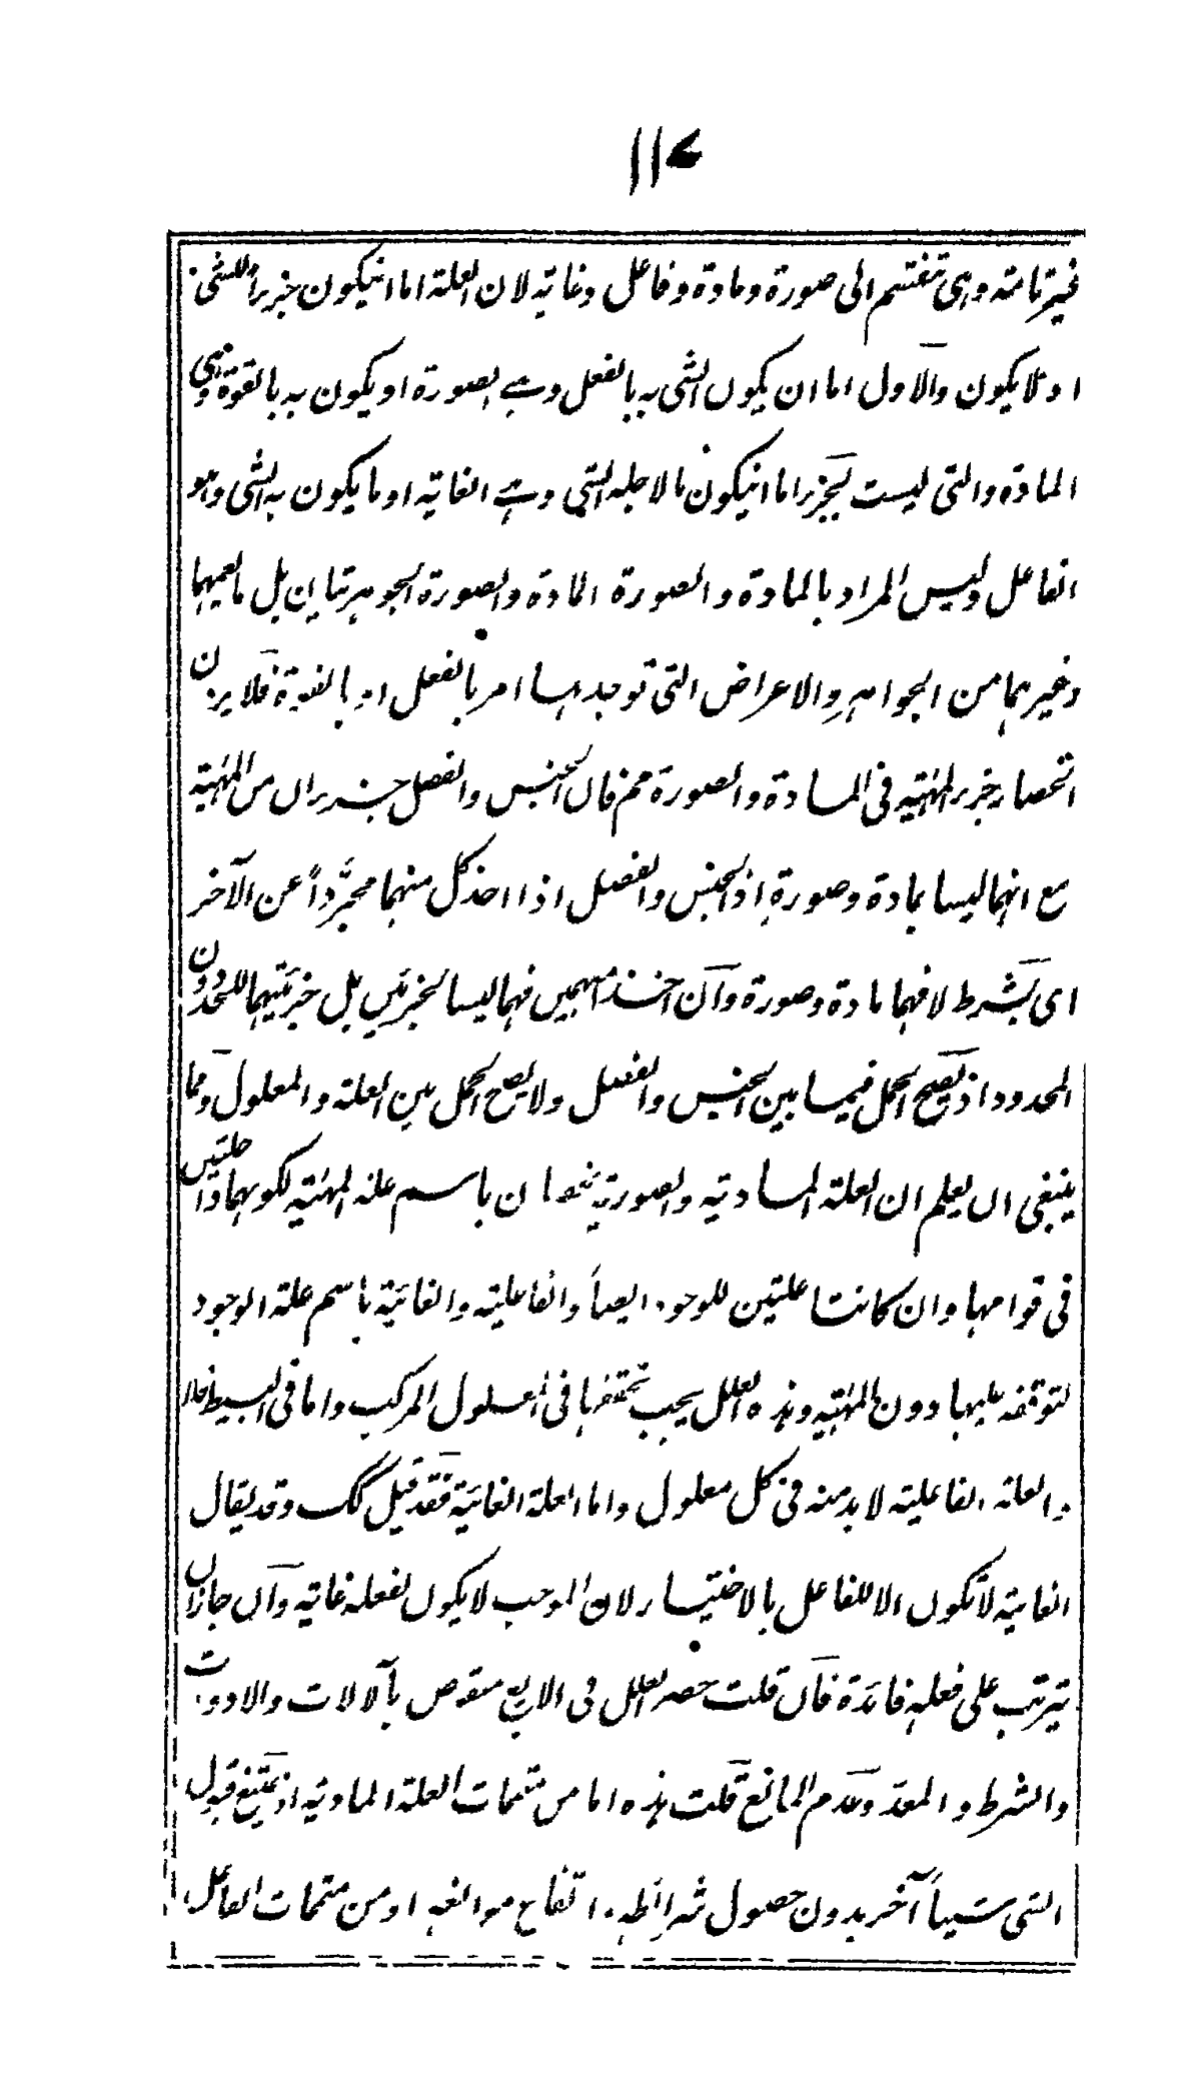 ۱۱۷
غير تامة وهى تنقسم الى صورة ومادة وفاعل وغاية لان العلة اما انيكون جزءاً للشئ
او لا يكون والاول اما ان يكون الشى به بالفعل وهے الصورة او يكون به بالقوة وهى
المادة والتى ليست بجزء اما انيكون ما لاجله الشى وهے الغاية او ما يكون به الشى وهو
الفاعل وليس المراد بالمادة والصورة المادة والصورة الجوهريتان بل ما يعمهما
وغيرهما من الجواهر والاعراض التى توجد بها امر بالفعل او بالقوة فلا يرد ان
انحصار جزء المهية فى المادة والصورة مم فان الجنس والفصل جزءان من المهية
مع انهما ليسا بمادة وصورة اذ الجنس والفصل اذا اخذ كل منهما مجرَّداً عن الآخر
اى بشرط لا فهما مادة وصورة وان اخذا مبهمين فهما ليسا بجزئين بل جزئيتهما للحد دون
المحدود اذ يصح الحمل فيما بين الجنس والفصل ولا يصح الحمل بين العلة والمعلول ومما
ينبغى ان يعلم ان العلة المادية والصورية يخصان باسم علة المهية لكونهما داخلتين
فى قوامها وان كانتا علتين للوجود ايضاً والفاعلية والغائية باسم علة الوجود
لتوقفه عليها دون المهية وهذه العلل يجب تحققها فى المعلول المركب واما فى البسيط فلا
والعلة الفاعلية لا بد منه فى كل معلول واما العلة الغائية فقد قيل كك وقد يقال
الغاية لا تكون الا للفاعل بالاختيار لان الموجب لا يكون لفعله غاية وان جاز ان
يترتب على فعله فائدة فان قلت حصر العلل فى الاربع منقوض بآلالات والادوات
والشرط والمعد وعدم المانع قلت هذه اما من متممات العلة المادية اذ يمتنع قبول
الشئ شيأً آخر بدون حصول شرائطه وارتفاع موانعه او من متممات الفاعل